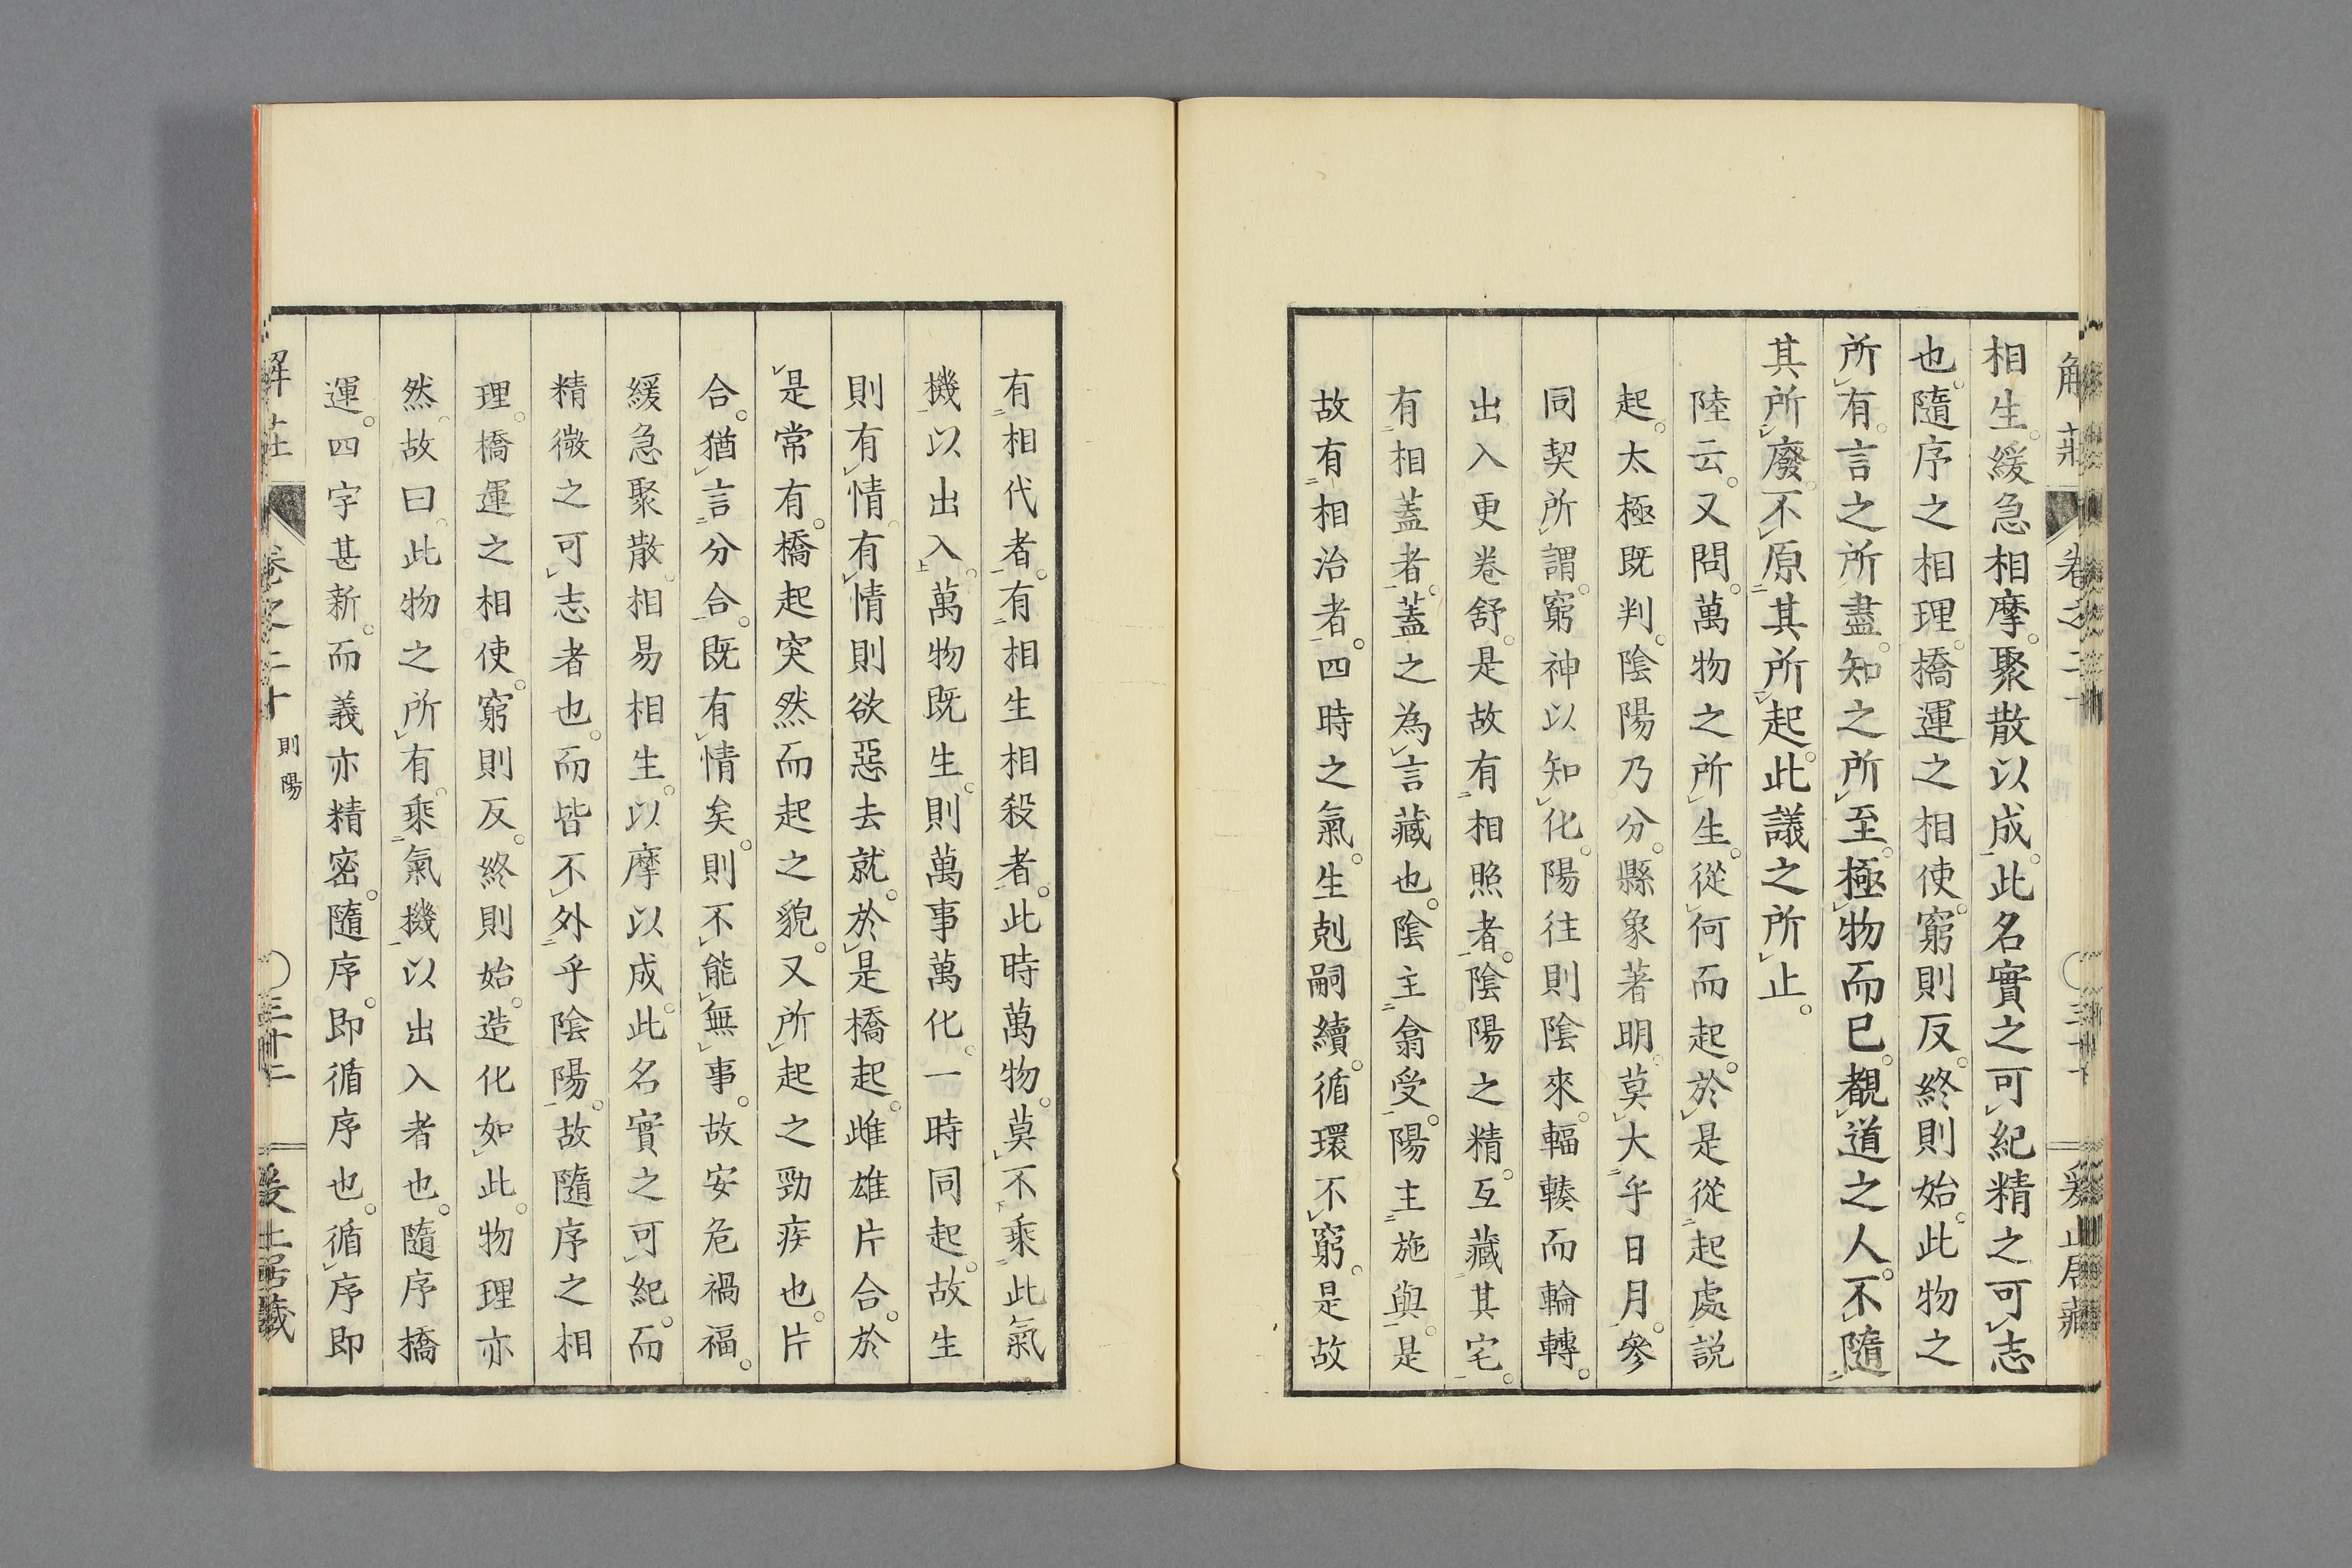 相生。緩急相摩。聚散以成。此名實之可紀精之可志
也。隨序之相理。橋運之相使。窮則反。終則始。此物之
所有。言之所盡。知之所至。極物而已。覩道之人。不隨
其所廢。不原其所起。此議之所止。
陸云。又問。萬物之所生。從何而起。於是從起處説
起。太極既判。陰陽乃分。縣象著明。莫大乎日月。參
同契所謂。窮神以知化。陽往則陰來。輻輳而輪轉。
出入更卷舒。是故有相照者。陰陽之精。互藏其宅。
有相蓋者。蓋之為言藏也。陰主翕受。陽主施與。是
故有相治者。四時之氣。生剋嗣續。循環不窮。是故
有相代者。有相生相殺者。此時萬物。莫不乘此氣
機以出入。萬物既生。則萬事萬化。一時同起。故生
則有情。有情則欲惡去就。於是橋起。雌雄片合。於
是常有。橋起突然而起之貌。又所起之勁疾也。片
合。猶言分合。既有情矣。則不能無事。故安危禍福。
緩急聚散。相易相生。以摩以成。此名實之可紀。而
精微之可志者也。而皆不外乎陰陽。故隨序之相
理。橋運之相使。窮則反。終則始。造化如此。物理亦
然。故曰。此物之所有。乘氣機以出入者也。隨序橋
運。四字甚新。而義亦精密。隨序。即循序也。循序即
則陽